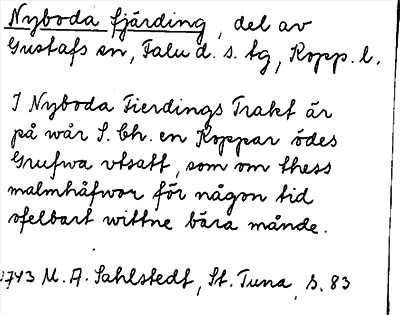 Nyboda fjärding, del av
Gustafs sn, Falu d. s. tg, Kopp. l.
I Nyboda Fierdings Trakt är
på wår S. Ch. en Koppar ödes
Grufwa vtsatt, som om thess
malmhåfwor för någon tid
ofelbart wittne bära månde.
1743 M. A. Sahlstedt, St. Tuna, s. 83